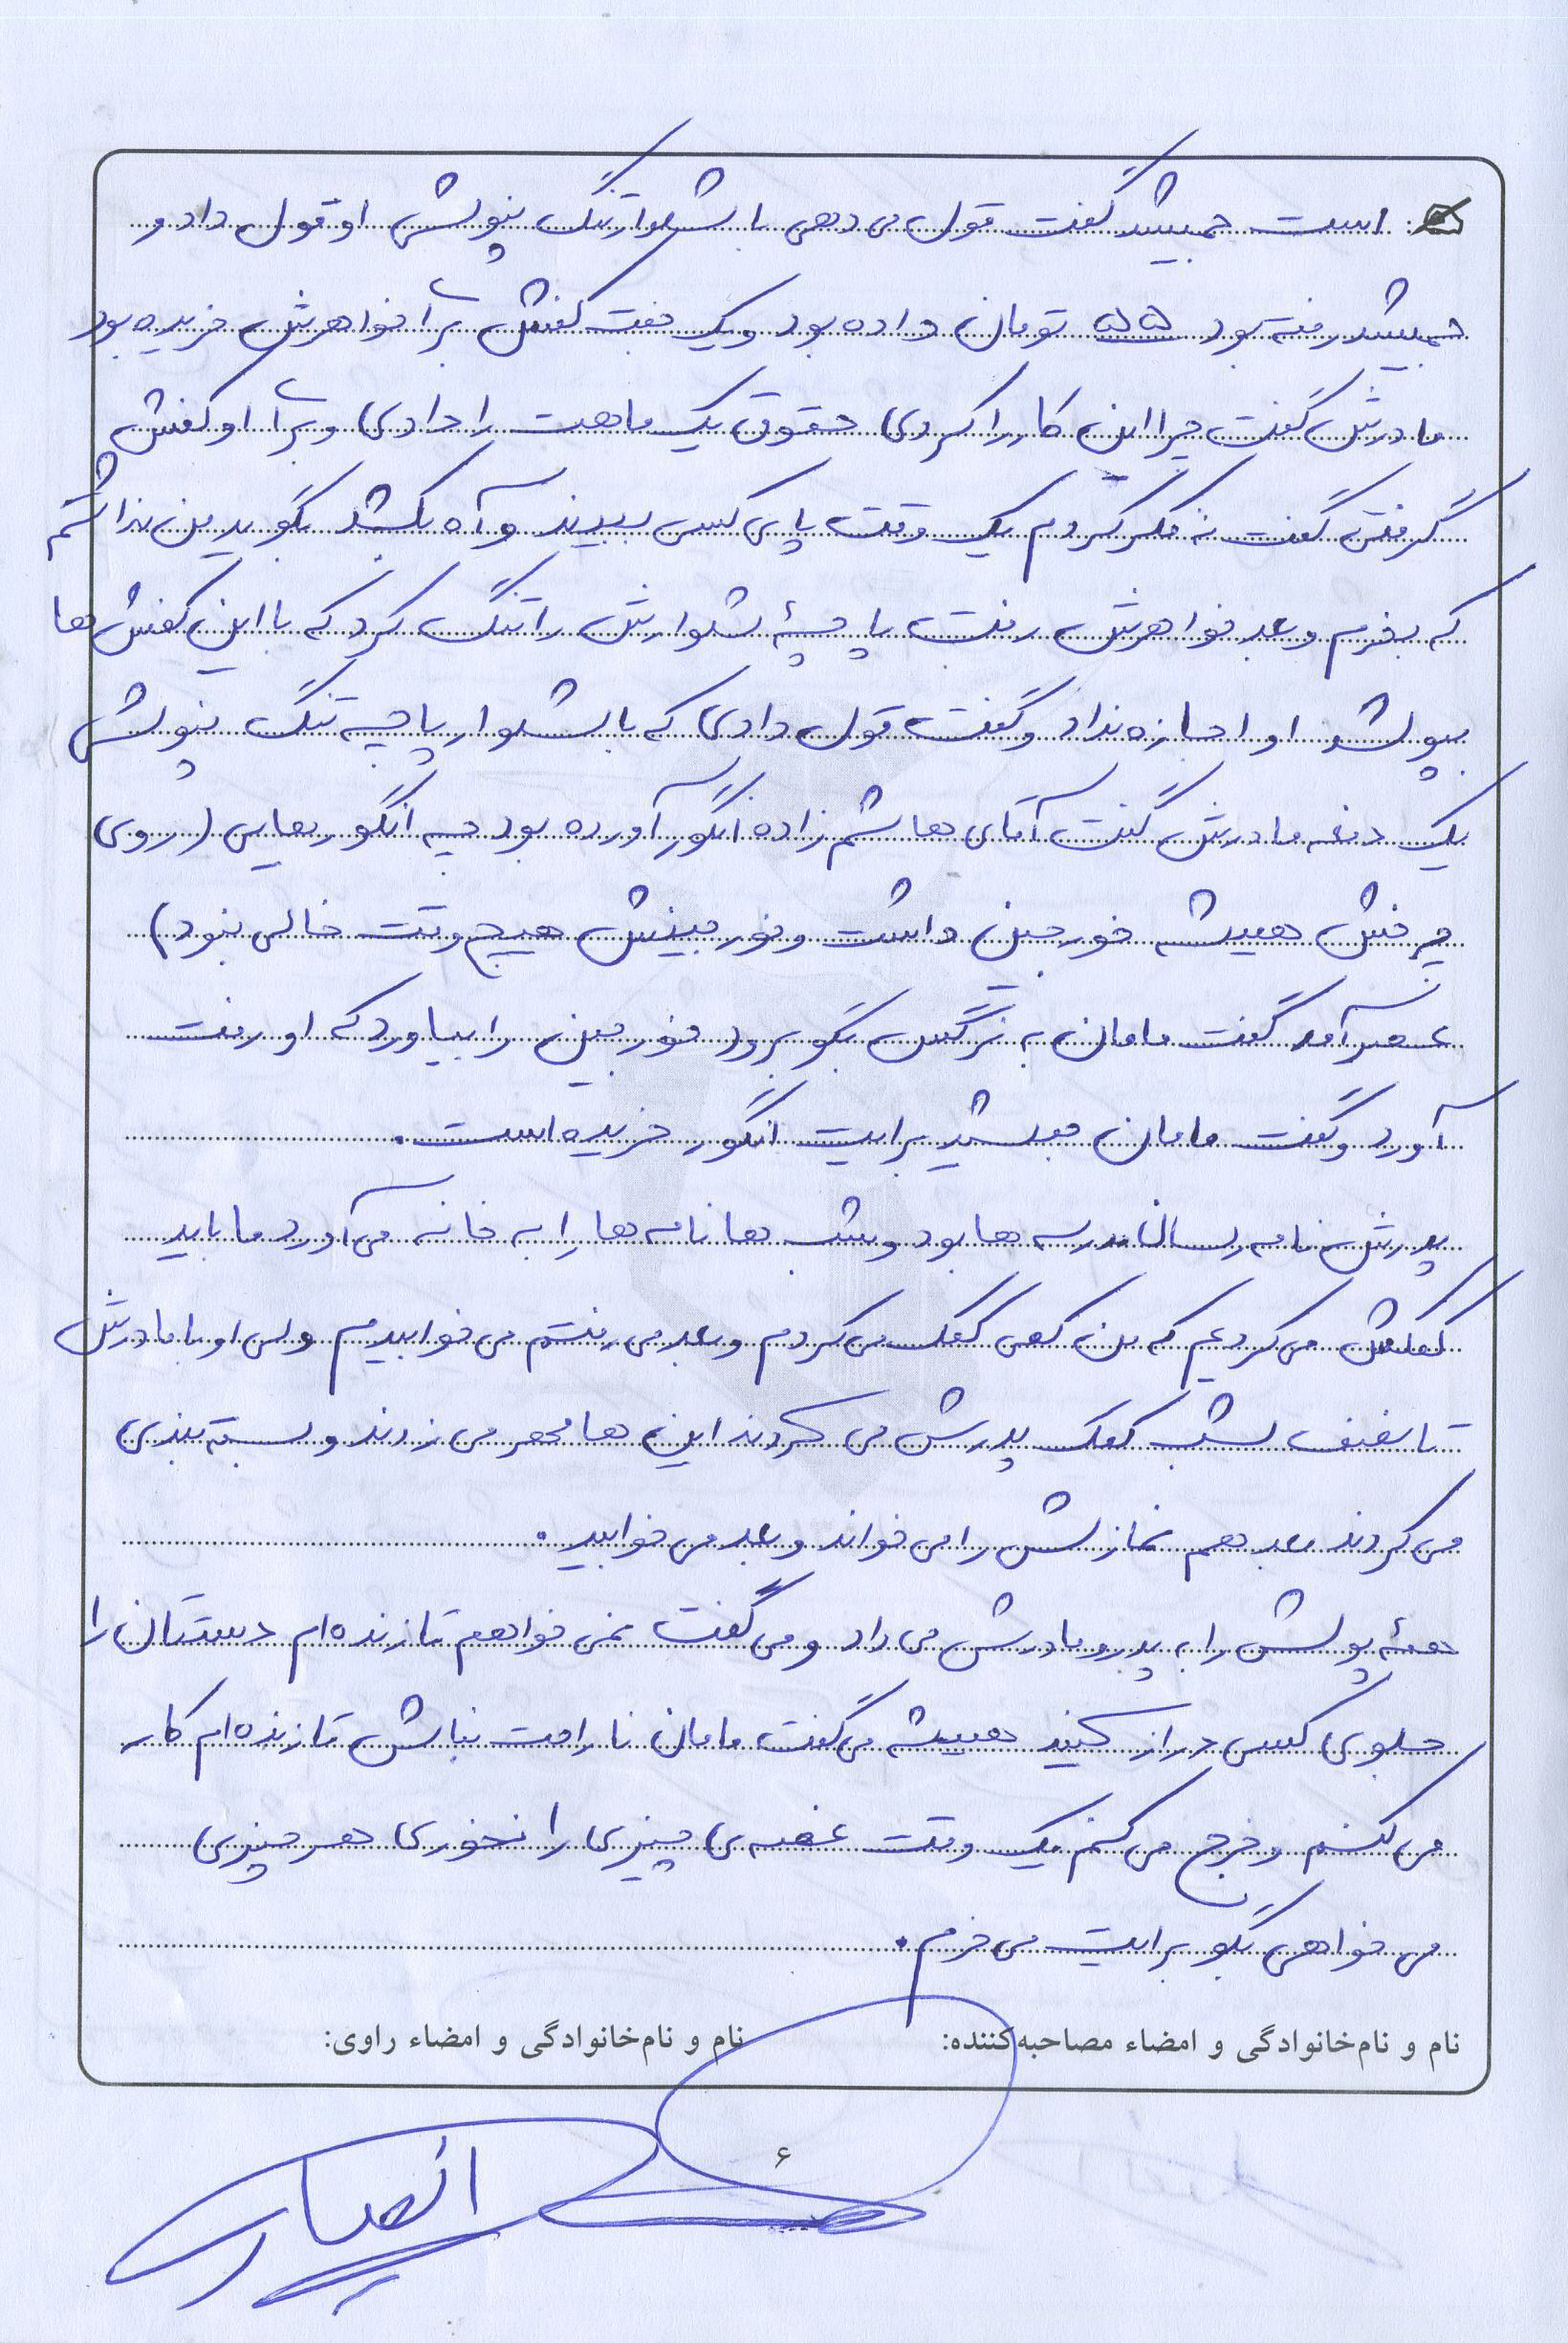 است جمشید گفت قول می دهی با شلوار تنگ نپوشی او قول داد و
جمشید رفته بود ۵۵ تومان داده بود و یک جفت کفش برا خواهرش خریده بود
مادرش گفت چرا این کار را کردی حقوق یک ماهت را دادی و برا او کفش
گرفتی گفت نه فکر کردم یک وقت پای کسی ببیند و آه بکشد بگوید من نداشتم
که بخرم و بعد خواهرش رفت پاچهٔ شلوارش را تنگ کرد که با این کفش ها
بپوشد او اجازه نداد و گفت قول دادی که با شلوار پاچه تنگ نپوشی
یک دفعه مادرش گفت آقای هاشم زاده انگور آورده بود چه انگورهایی (روی
چرخش همیشه خورجین داشت و خورجینش هیچ وقت خالی نبود)
عصر آمد گفت مامان به نرگس بگو برود خورجین را بیاورد که او رفت
آورد و گفت مامان جمشید برایت انگور خریده است.
پدرش نامه رسان مدرسه ها بود و شب ها نامه ها را به خانه می آورد ما باید
کمکش می کردیم که من کمی کمک می کردم و بعد می رفتم می خوابیدم ولی او با مادرش
تا نصف شب کمک پدرش می کردند این ها مهر می زدند و بسته بندی
می کردند بعد هم نمازش را می خواند و بعد می خوابید.
همهٔ پولش را به پدر و مادرش می داد و می گفت نمی خواهم تا زنده ام دستتان را
جلوی کسی دراز کنید همیشه می گفت مامان ناراحت نباش تا زنده ام کار
می کنم و خرج می کنم یک وقت غصه ی چیزی را نخوری هر چیزی
می خواهی بگو برایت می خرم.
نام و نام‌خانوادگی و امضاء مصاحبه‌کننده: نام و نام‌خانوادگی و امضاء راوی:
۶